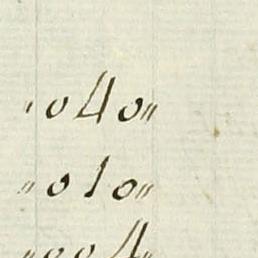 "040"
"010"
"004"